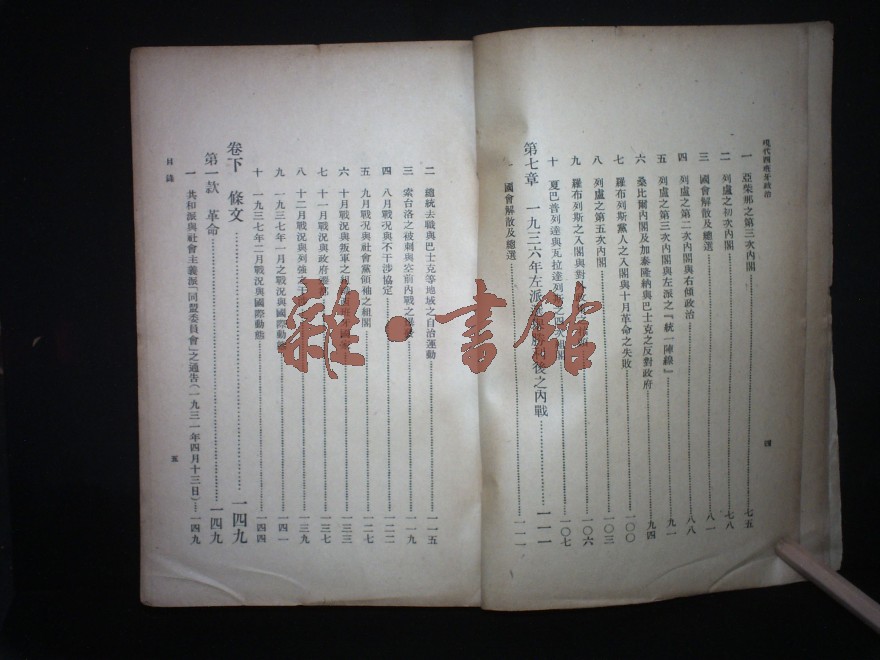 現代西班牙政治
一 亞柴那之第三次內閣 七五
二 列盧之初次內閣 七八
三 國會解散及總選 八一
四 列盧之第二次內閣與右傾政治 八八
五 列盧之第三次內閣與左派之『統一陣線』 九一
六 桑比爾內閣及加泰隆納與巴士克之反對政府 九四
七 羅布列斯黨人之入閣與十月革命之失敗 一〇〇
八 列盧之第五次內閣 一〇三
九 羅布列斯之入閣與對 一〇六
十 夏巴普列達與瓦拉達列 之四次 閣 一〇七
第七章 一九三六年左派 後之內戰 一一一
一 國會解散及總選 一一一
四
二 總統去職與巴士克等地域之自治運動 一一五
三 索台洛之被刺與空前內戰之 一一九
四 八月戰況與不干涉協定 一二二
五 九月戰況與社會黨領袖之組閣 一二七
六 十月戰況與叛軍之 一三三
七 十一月戰況與政府 一三七
八 十二月戰況與列強之干 一三九
九 一九三七年一月之戰況與國際動態 一四一
十 一九三七年二月戰況與國際動態 一四四
卷下 條文 一四九
第一款 革命 一四九
一 共和派與社會主義派「同盟委員會」之通告(一九三一年四月十三日) 一四九
目錄
五
雜·書館